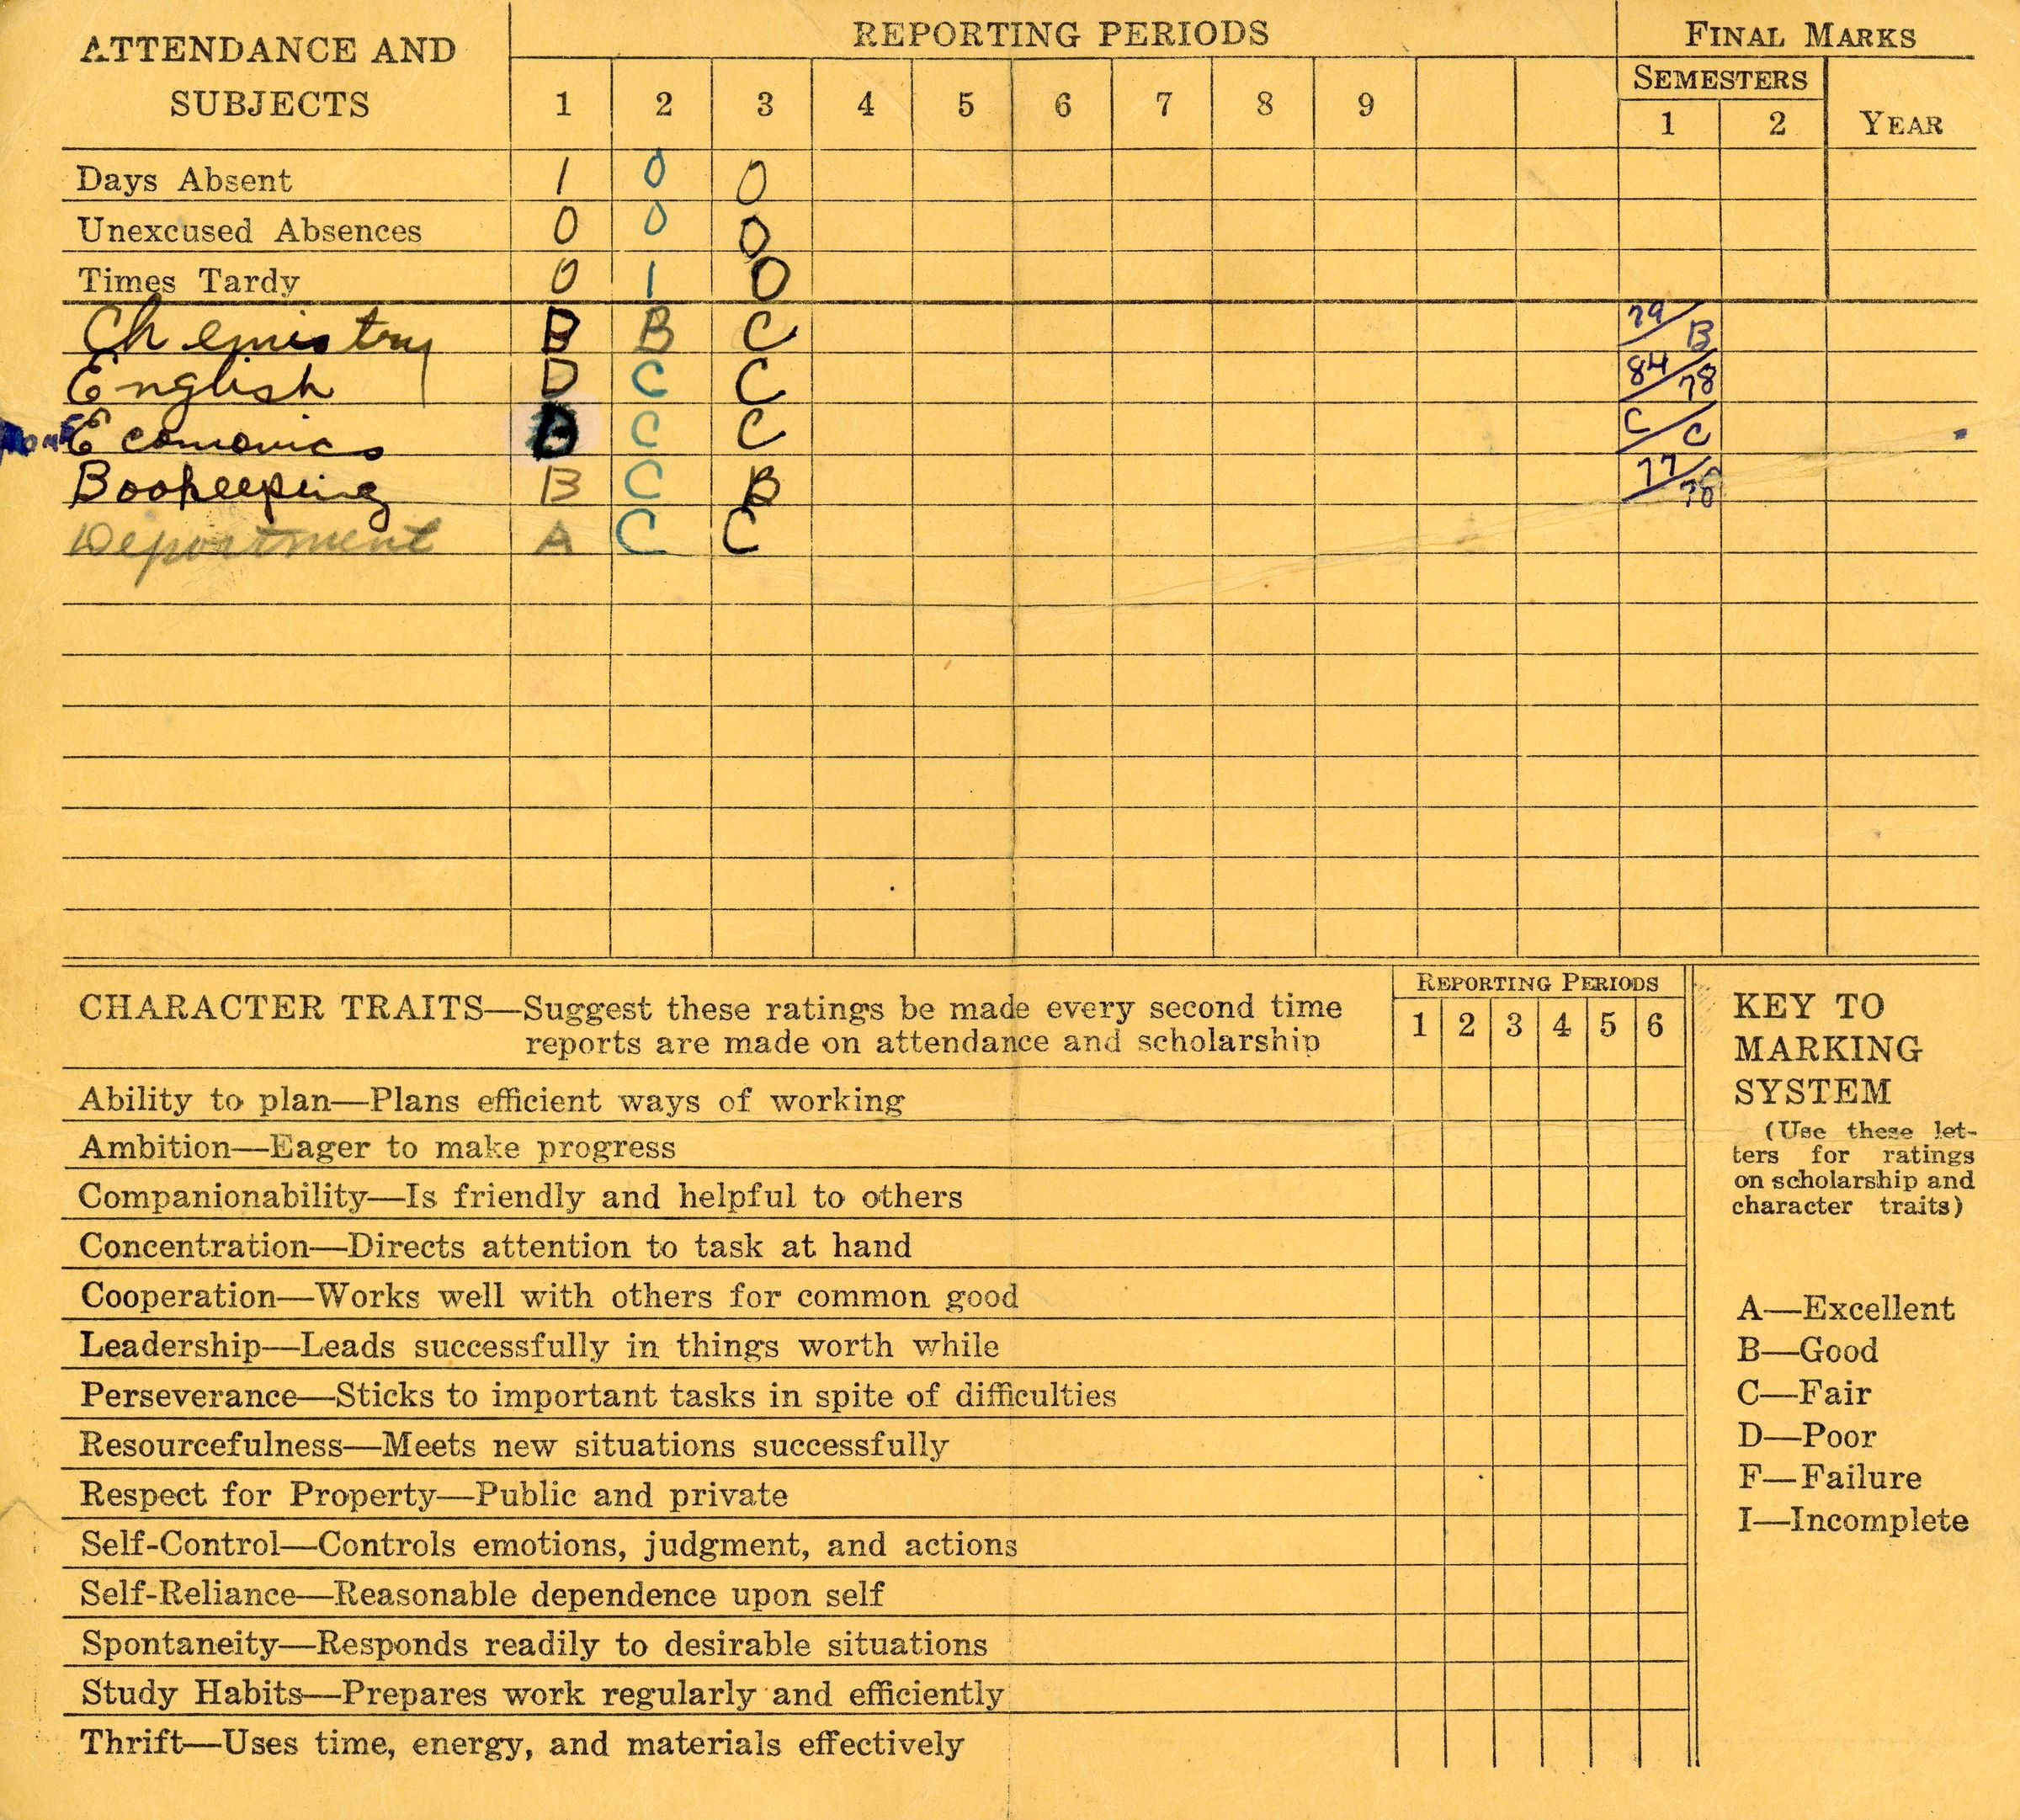 ATTENDANCE AND SUBJECTS REPORTING PERIODS FINAL MARKS
SEMESTERS
1 2 3 4 5 6 7 8 9 1 2 YEAR
Days Absent 1 0 0
Unexcused Absences 0 0 0
Times Tardy 0 1 0
Chemistry B B C 79/B
English D C C 84/78
Economics C C C/C
Bookeeping B C B 77/
Deportment A C C
CHARACTER TRAITS—Suggest these ratings be made every second time
reports are made on attendance and scholarship
REPORTING PERIODS
1 2 3 4 5 6
Ability to plan—Plans efficient ways of working
Ambition—Eager to make progress
Companionability—Is friendly and helpful to others
Concentration—Directs attention to task at hand
Cooperation—Works well with others for common good
Leadership—Leads successfully in things worth while
Perseverance—Sticks to important tasks in spite of difficulties
Resourcefulness—Meets new situations successfully
Respect for Property—Public and private
Self-Control—Controls emotions, judgment, and actions
Self-Reliance—Reasonable dependence upon self
Spontaneity—Responds readily to desirable situations
Study Habits—Prepares work regularly and efficiently
Thrift—Uses time, energy, and materials effectively
KEY TO
MARKING
SYSTEM
(Use these let-
ters for ratings
on scholarship and
character traits)
A—Excellent
B—Good
C—Fair
D—Poor
F—Failure
I—Incomplete